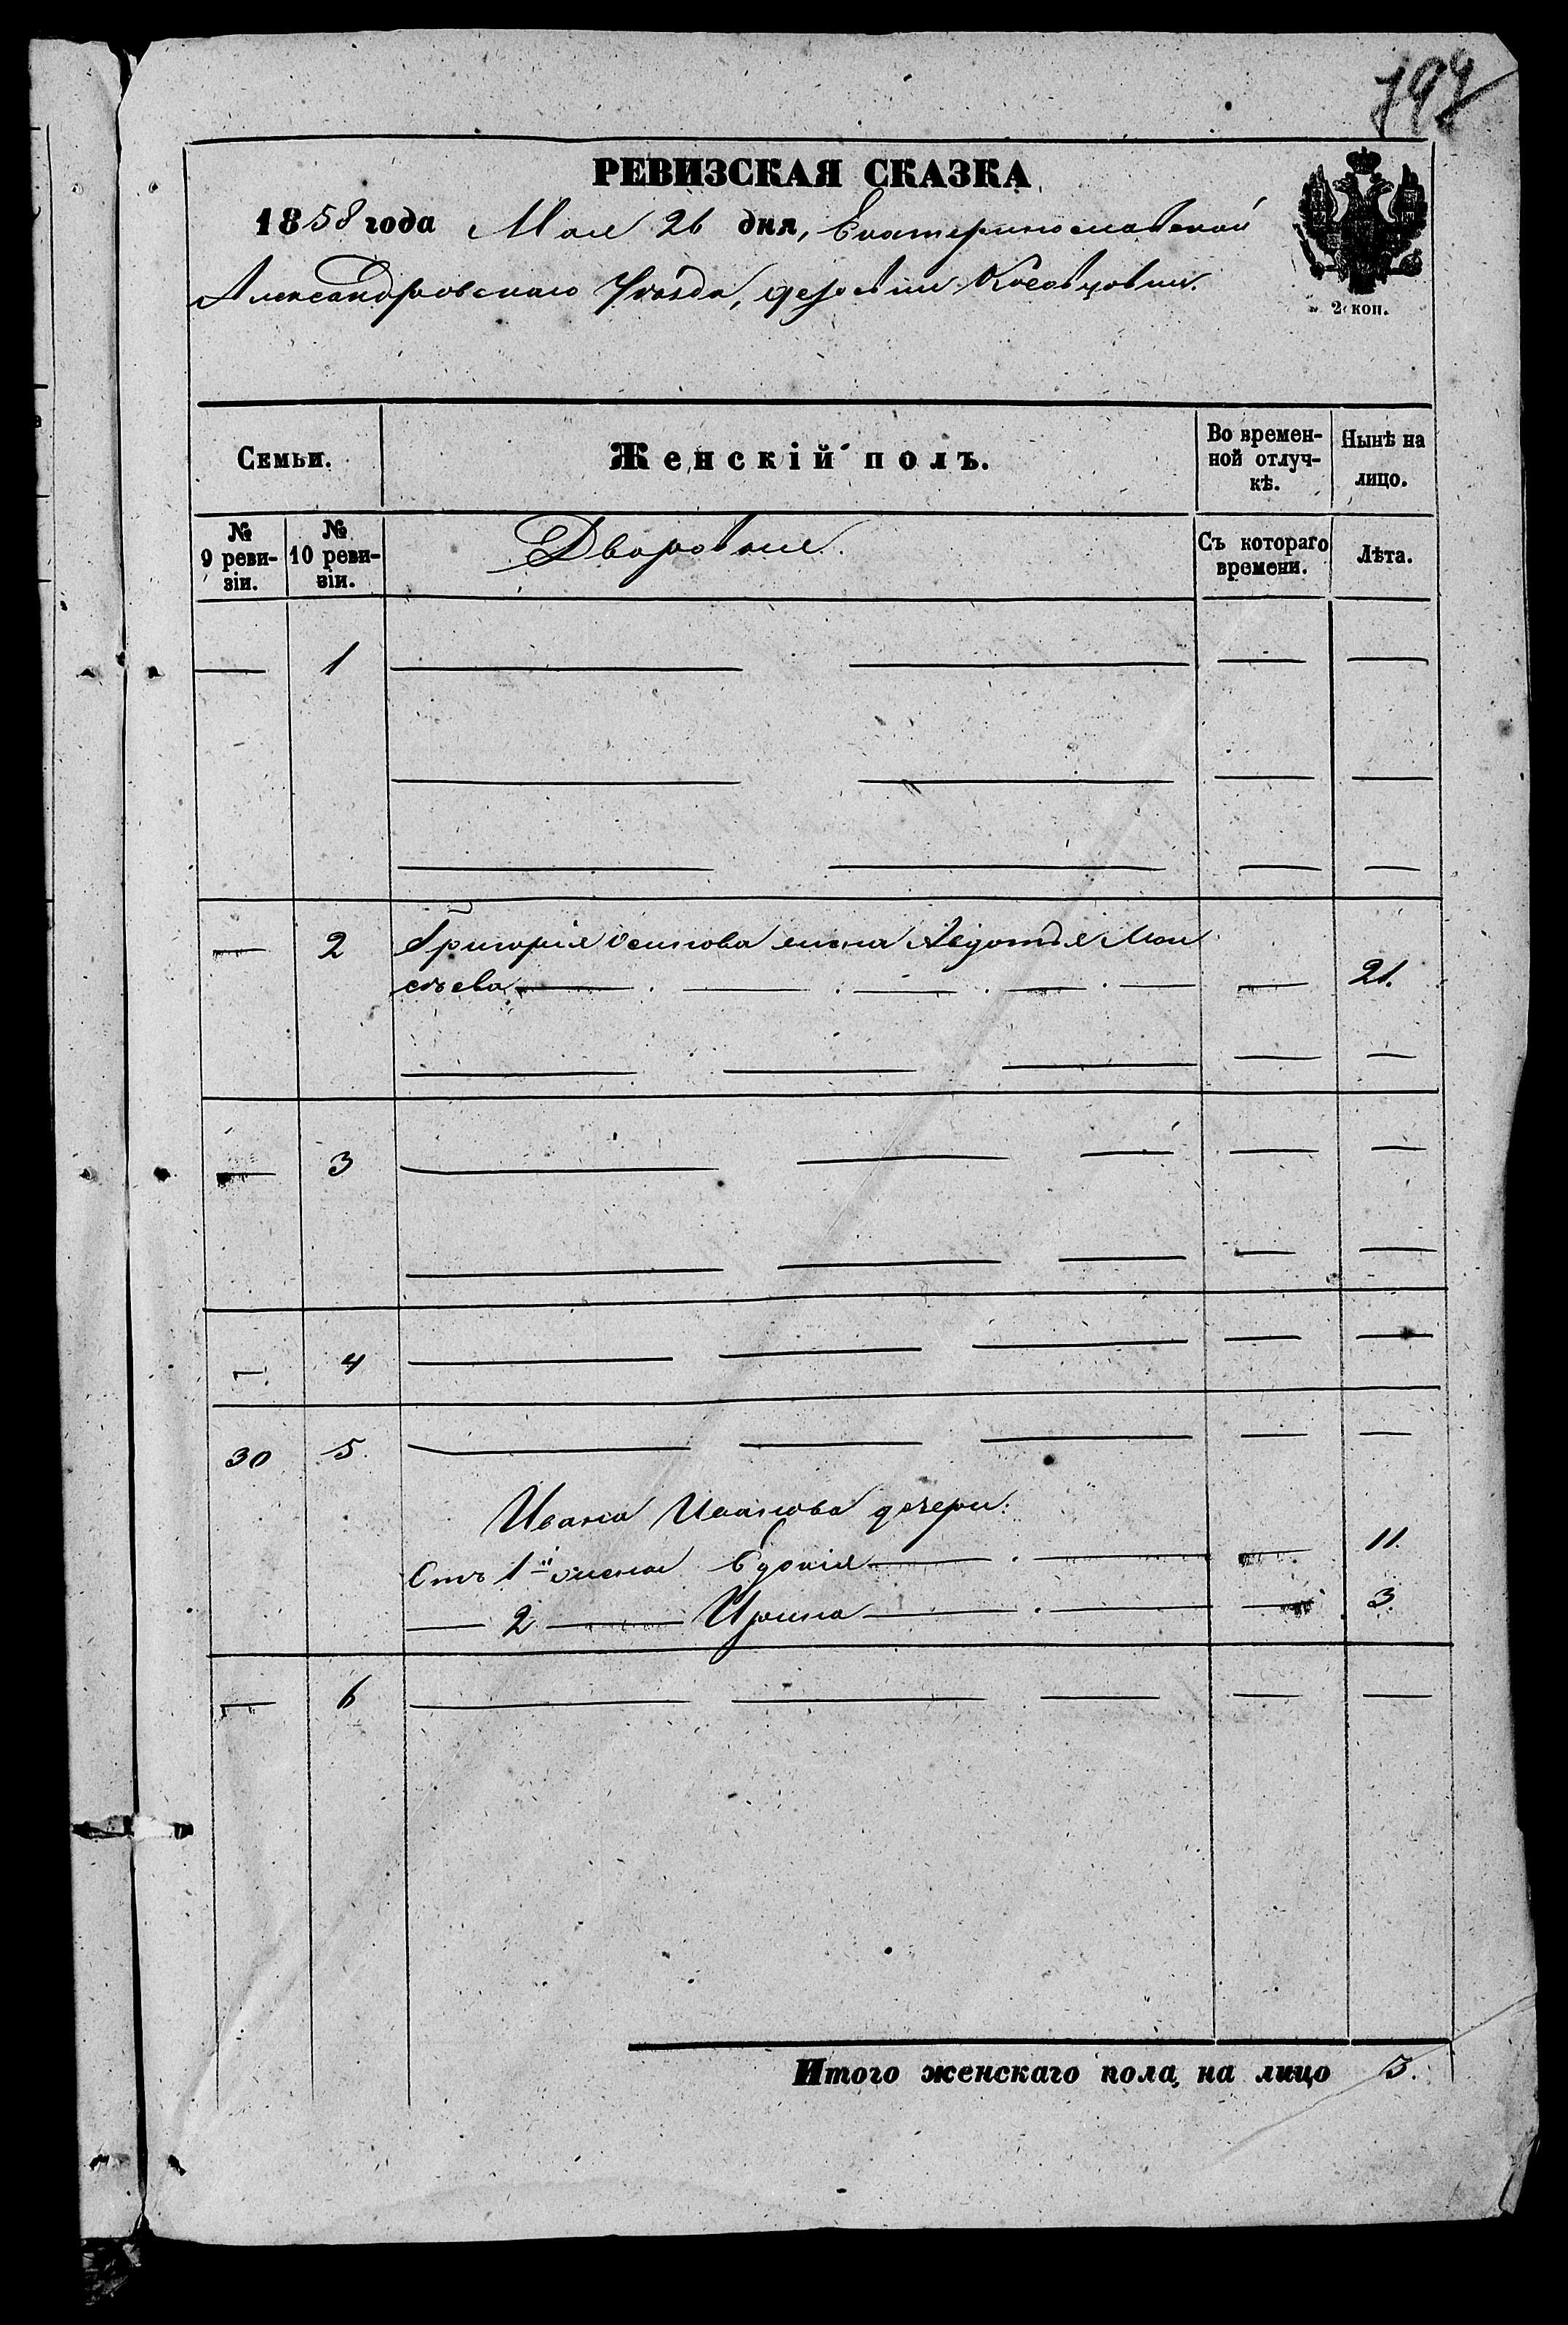 797
РЕВИЗСКАЯ СКАЗКА
1858 года Мая 26 дня, Екатеринославской
Александровскаго Уѣзда, деревни
2 коп.
Семьи.
Женскій полъ.
Во времен-
ной отлуч-
кѣ.
Нынѣ на
лицо.
№
9 реви-
зіи.
№
10 реви-
зіи.
Дворовые.
Съ котораго
времени.
Лѣта.
— 1 — — — —
— — — —
— — — —
— 2 Григорія Осипова жена Авдотья Мои
сѣева — — — — — — 21.
— — — — —
— 3 — — — — —
— — — — —
— 4 — — — — —
30 5. — — — — —
Ивана Иванова дочери:
Отъ 1й жены Евдокія — — — 11.
— 2 — Ирина — — — 3.
— 6 — — — — —
Итого женскаго пола на лицо 3.